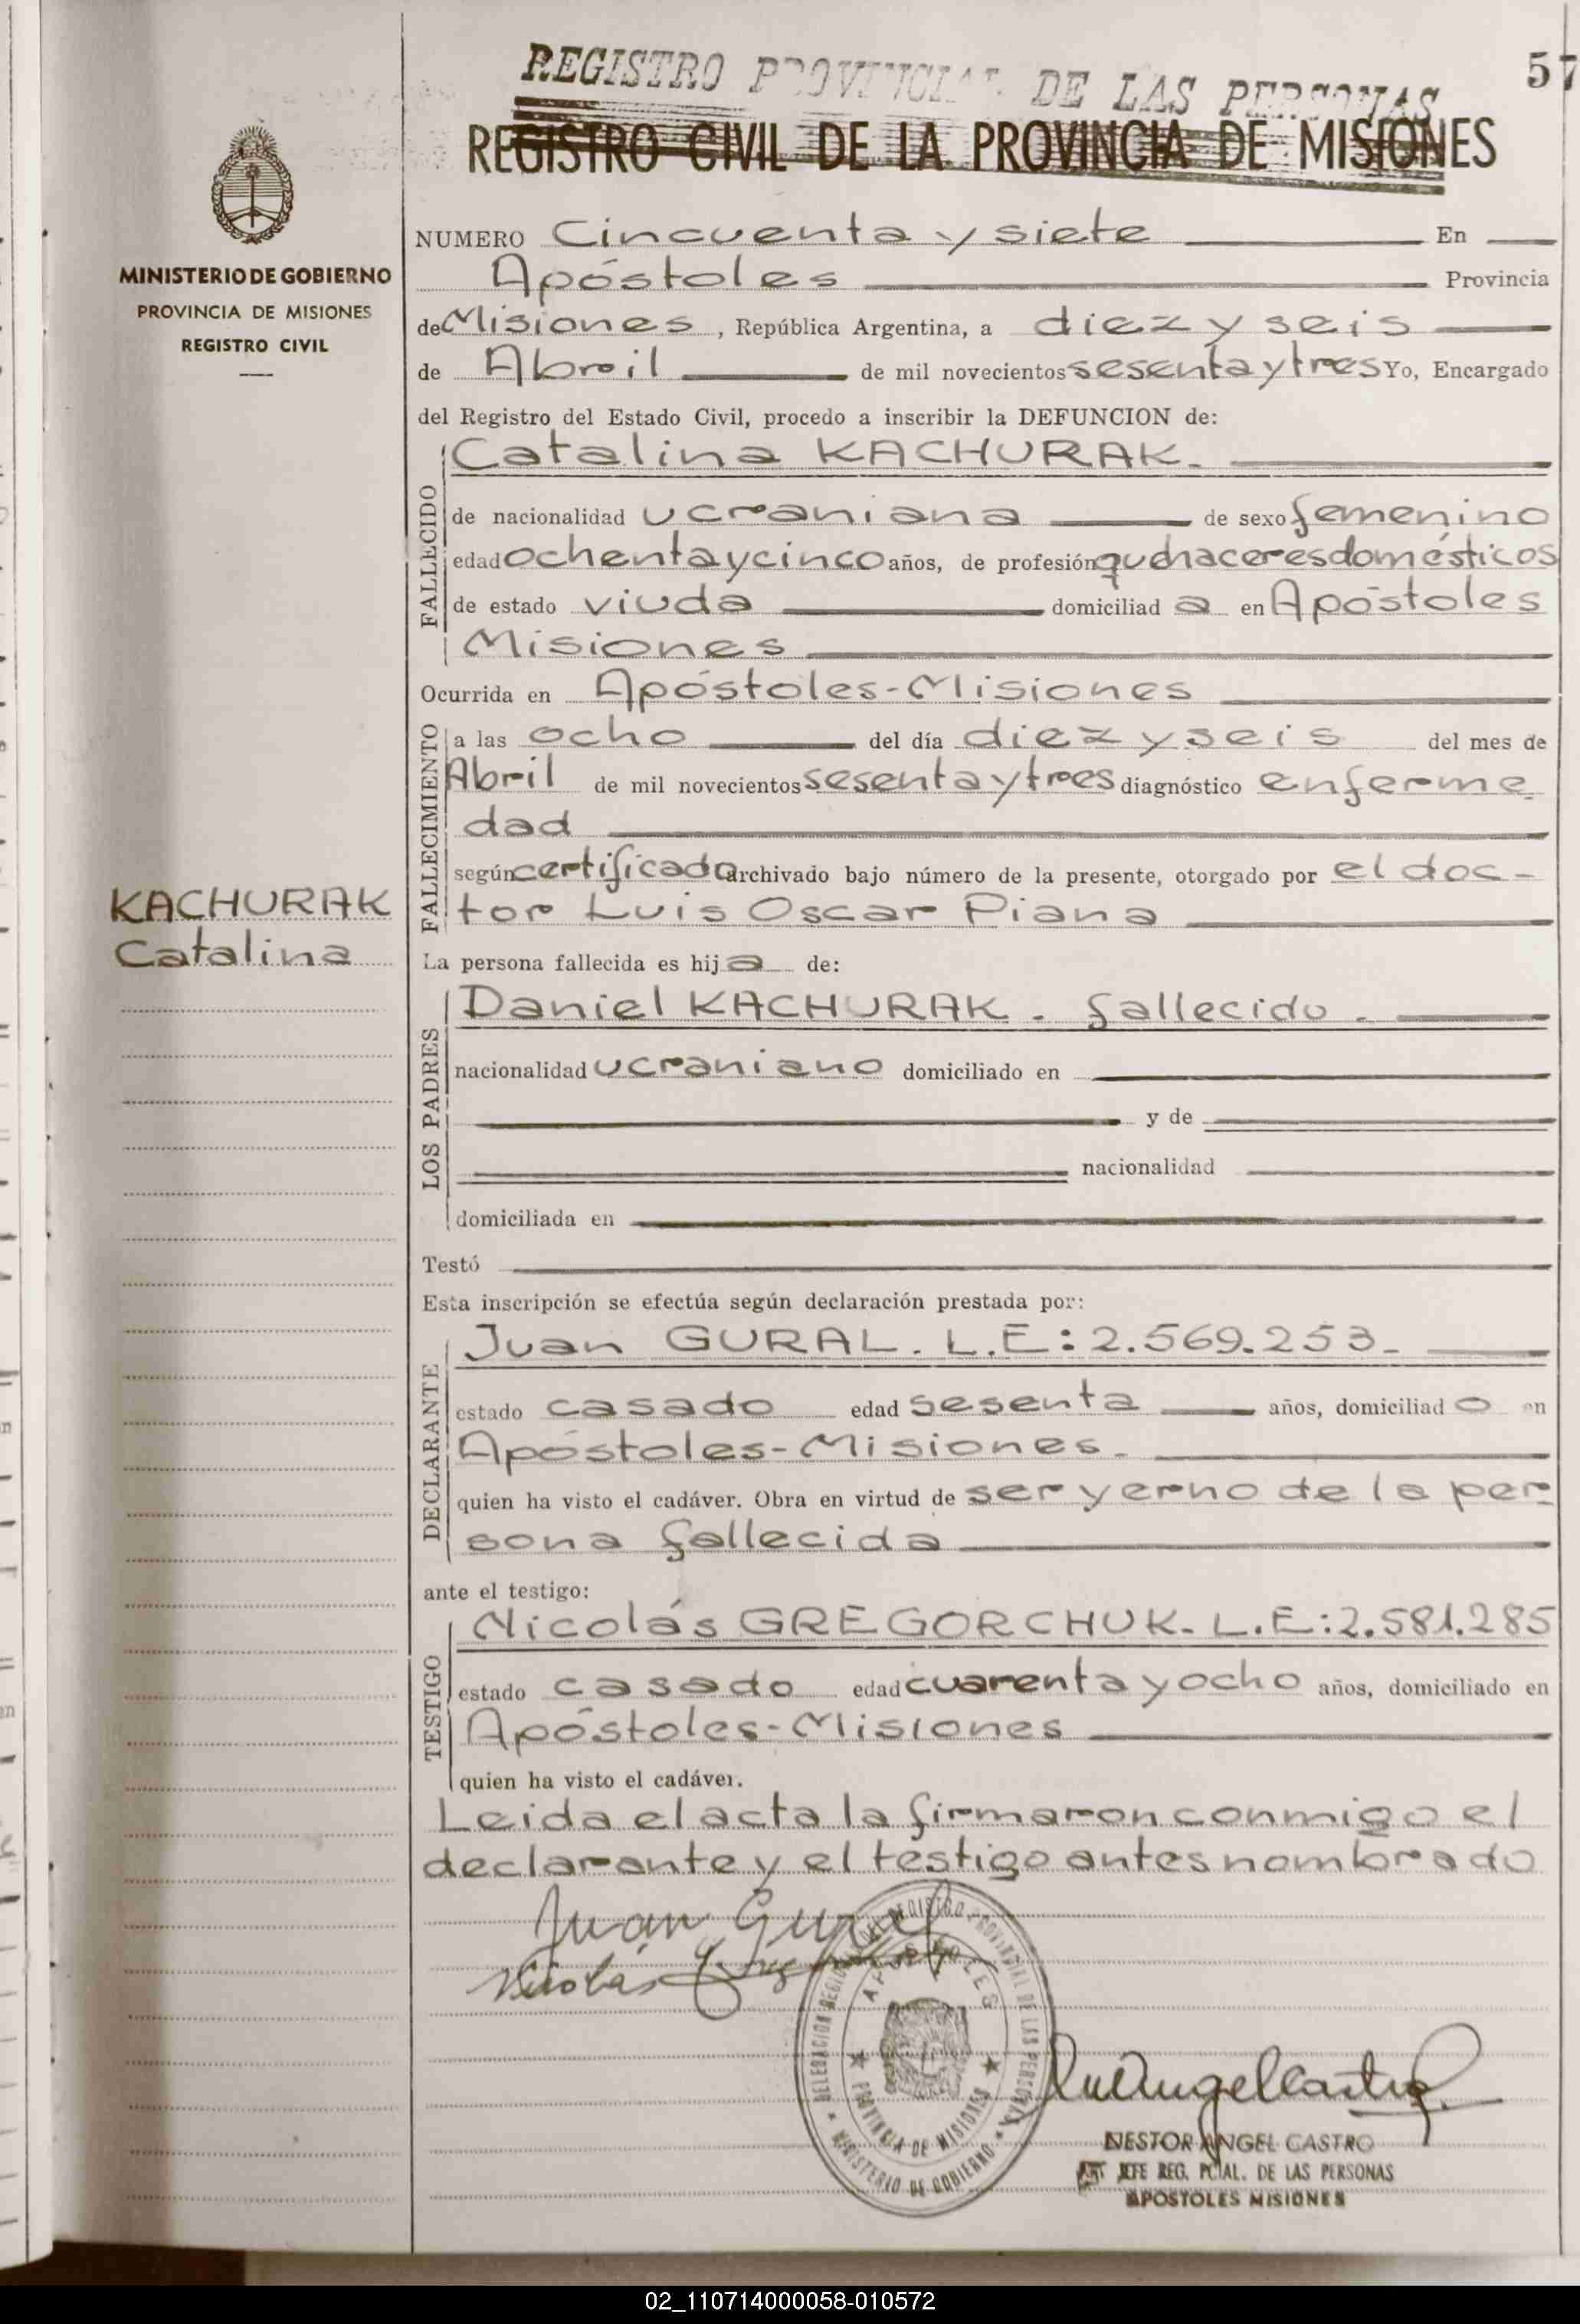 57
REGISTRO PROVINCIAL DE LAS PERSONAS
REGISTRO CIVIL DE LA PROVINCIA DE MISIONES
MINISTERIO DE GOBIERNO
PROVINCIA DE MISIONES
REGISTRO CIVIL
KACHURAK
Catalina
NUMERO Cincuenta y siete En
Apóstoles Provincia
de Misiones, República Argentina, a diez y seis
de Abril de mil novecientos sesenta y tres Yo, Encargado
del Registro del Estado Civil, procedo a inscribir la DEFUNCION de:
FALLECIDO
Catalina KACHURAK.
de nacionalidad ucraniana de sexo femenino
edad ochenta y cinco años, de profesión quehaceres domésticos
de estado viuda domiciliad a en Apóstoles
Misiones
Ocurrida en Apóstoles-Misiones
FALLECIMIENTO
a las ocho del día diez y seis del mes de
Abril de mil novecientos sesenta y tres diagnóstico enferme
dad
según certificado archivado bajo número de la presente, otorgado por el doc-
tor Luis Oscar Piana
La persona fallecida es hij a de:
LOS PADRES
Daniel KACHURAK. fallecido.
nacionalidad ucraniano domiciliado en
y de
nacionalidad
domiciliada en
Testó
Esta inscripción se efectúa según declaración prestada por:
DECLARANTE
Juan GURAL. L.E:2.569.253.
estado casado edad sesenta años, domiciliad o en
Apóstoles-Misiones.
quien ha visto el cadáver. Obra en virtud de ser yerno de la per
sona fallecida
ante el testigo:
TESTIGO
Nicolás GREGORCHUK. L.E:2.581.285
estado casado edad cuarenta y ocho años, domiciliado en
Apóstoles-Misiones
quien ha visto el cadáver.
Leida el acta la firmaron conmigo el
declarante y el testigo antes nombrado
Juan Gural
Nicolás
DELEGACION DEL REGISTRO PROVINCIAL DE LAS PERSONAS
APOSTOLES
PROVINCIA DE MISIONES
MINISTERIO DE GOBIERNO
NESTOR ANGEL CASTRO
JEFE REG. PCIAL. DE LAS PERSONAS
APOSTOLES MISIONES
02_110714000058-010572